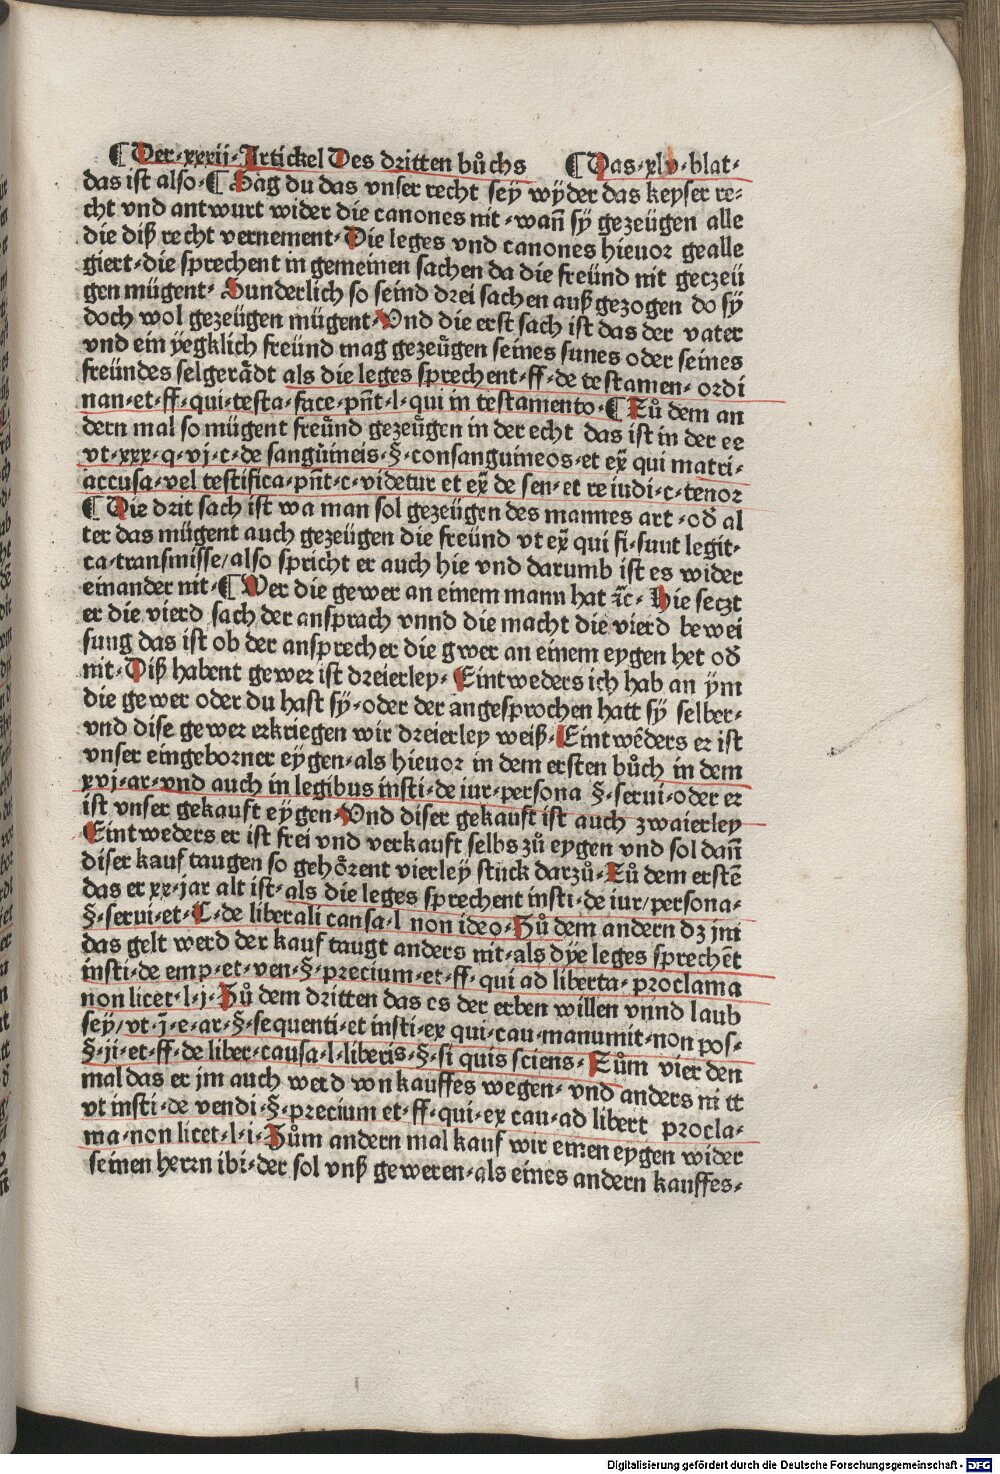 ¶ Der·xxxij·Artickel Des dritten bůchs ¶ Das·xlv·blat·
das ist also·¶ Sag du das vnser recht seÿ wÿder das keÿser re⸗
cht vnd antwurt wider die canones nit·wañ sÿ gezeügen alle
die diß recht vernement·Die leges vnd canones hieuor gealle
giert·die sprechent in gemeinen sachen da die freünd nit geczeü
gen mügent· Sunderlich so seind drei sachen auß gezogen do sÿ
doch wol gezeügen mügent·Vnd die erst sach ist das der vater
vnd ein ÿegklich freünd mag gezeügen seines sunes oder seines
freündes selgerådt als die leges sprechent·ff·de testamen· ordi
nan·et·ff·qui·testa·face·pñt·l·qui in testamento·¶ Zů dem an
dern mal so mügent freünd gezeügen in der echt das ist in der ee
vt·xxx·q·vj·c·de sanguineis·§·consanguineos·et ex̃ qui matri·
accusa·vel testifica·pñt·c·videtur et ex̃ de sen·et re iudi·c·tenor
¶ Die drit sach ist wa man sol gezeügen des mannes art·od̃ al
ter das mügent auch gezeügen die freünd vt ex̃ qui fi·sunt legit·
ca·transmisse/also spricht er auch hie vnd darumb ist es wider
einander nit·¶ Wer die gewer an einem mann hat ⁊c̃· Hie seczt
er die vierd sach der ansprach vnnd die macht die vierd bewei
sung das ist ob der ansprecher die gwer an einem eygen het od̃
nit·Diß habent gewer ist dreierley· Eintweders ich hab an ÿm
die gewer oder du hast sÿ·oder der angesprochen hatt sÿ selber·
vnd dise gewer erkriegen wir dreierley weiß·Eintwēders er ist
vnser eingeborner eÿgen·als hieuor in dem ersten bůch in dem
xvj·ar·vnd auch in legibus insti·de iur·persona §·serui·oder er
ist vnser gekauft eÿgen·Vnd diser gekauft ist auch zwaierley
Eintweders er ist frei vnd verkauft selbs zů eygen vnd sol dañ
diser kauf taugen so gehŏrent vierleÿ stuck darzů·Zů dem erstē
das er xx·jar alt ist·als die leges sprechent insti·de iur/persona·
§·serui·et·C·de liberali causa·l non ideo·Zů dem andern dz jm
das gelt werd der kauf taugt anders nit·als dÿe leges sprechēt
insti·de emp·et·ven·§·precium·et·ff·qui ad liberta·proclama
non licet·l·j·Zů dem dritten das es der erben willen vnnd laub
seÿ/vt·j̄·e·ar·§·sequenti·et insti·ex qui·cau·manumit·non pos·
§·ji·et·ff·de liber·causa·l·liberis·§·si quis sciens· Zům vierden
mal das er jm auch werd von kauffes wegen· vnd anders nitt
vt insti·de vendi·§·precium et·ff·qui·ex cau·ad libert procla⸗
ma·non licet·l·i·Zům andern mal kauf wir einen eygen wider
seinen herrn ibi·der sol vnß geweren·als eines andern kauffes·
Digitalisierung gefördert durch die Deutsche Forschungsgemeinschaft - DFG